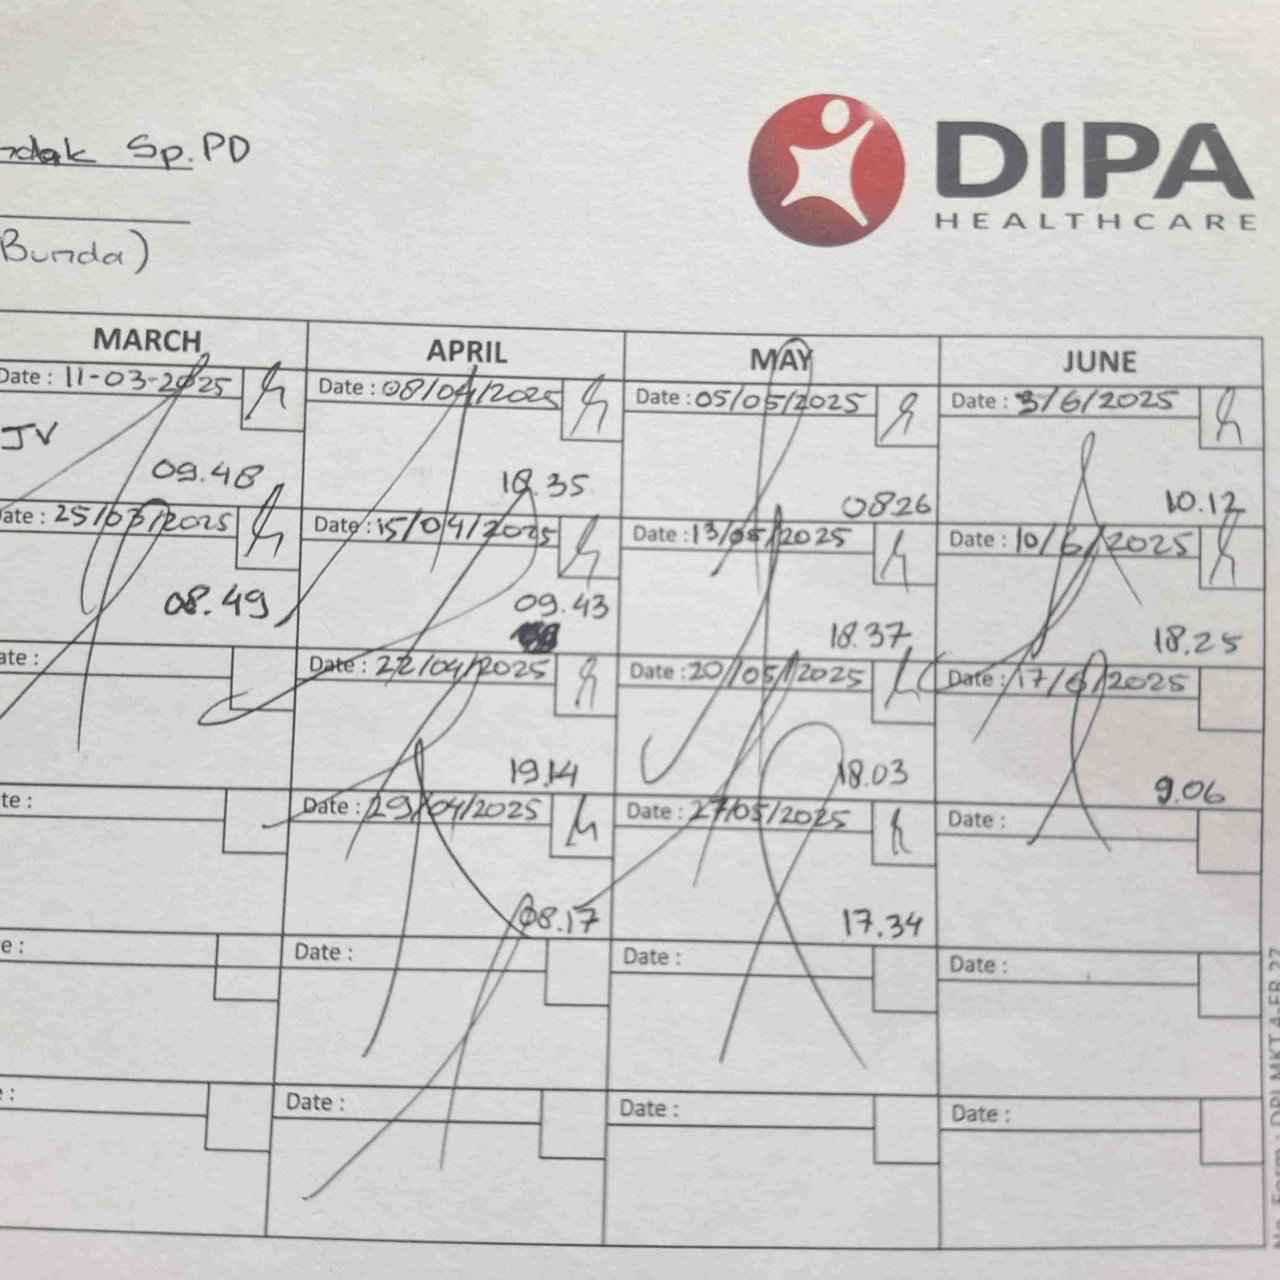 Sp.PD
Bunda)
DIPA
HEALTHCARE
MARCH APRIL MAY JUNE
Date : 11-03-2025 Date : 08/04/2025 Date : 05/05/2025 Date : 3/6/2025
JV
09.48 18.35 0826 10.12
ate : 25/03/2025 Date : 15/04/2025 Date : 13/05/2025 Date : 10/6/2025
08.49 09.43 18.37 18.25
ate : Date : 22/04/2025 Date : 20/05/2025 Date : 17/6/2025
19.14 18.03 9.06
te : Date : 29/04/2025 Date : 27/05/2025 Date :
08.17 17.34
e : Date : Date : Date :
: Date : Date : Date :